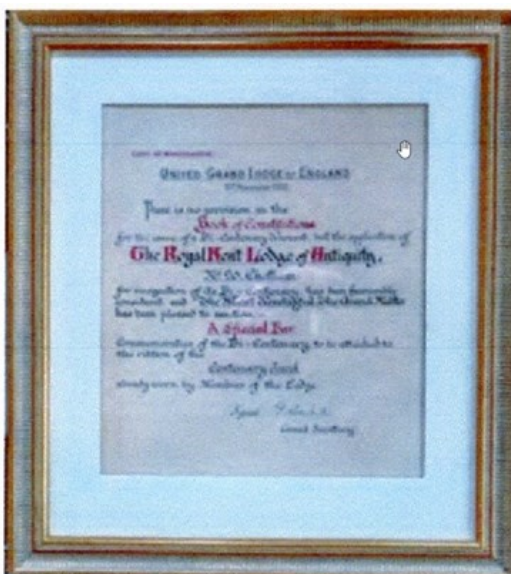 UNITED GRAND LODGE OF ENGLAND
There is no provision in the
Book of Constitutions
for the issue of a Bi-Centenary Warrant, but the application of
The Royal Kent Lodge of Antiquity,
No 20, Chatham
for recognition of its Bi-Centenary, has been favourably
considered and The Most Worshipful The Grand Master
has been pleased to sanction
A Special Bar
Commemorative of the Bi-Centenary to be attached to
the ribbon of the
Centenary Jewel
already worn by Members of the Lodge
Signed
Grand Secretary